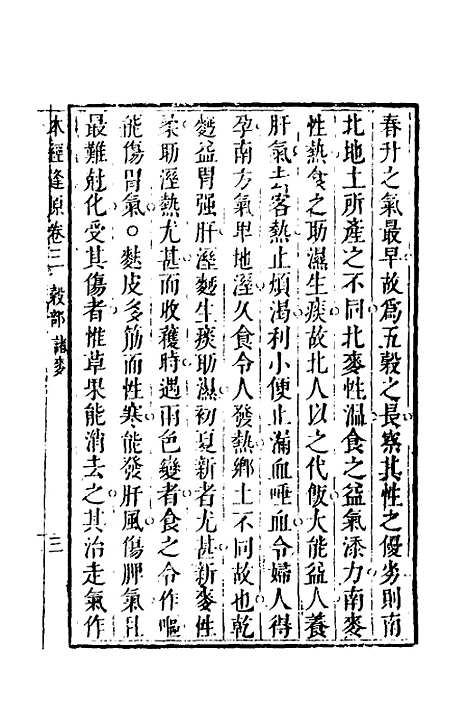 春升之氣最早故爲五穀之長察其性之優劣則南
北地土所產之不同北麥性溫食之益氣添力南麥
性熱食之助濕生痰故北人以之代飯大能益人養
肝氣去客熱止煩渴利小便止漏血唾血令婦人得
孕南方氣卑地溼久食令人發熱鄉土不同故也乾
麪益胃强肝溼麪生痰助濕初夏新者尤甚新麥性
熱助溼熱尤甚而收穫時遇雨色變者食之令作嘔
能傷胃氣○麩皮多筋而性寒能發肝風傷脾氣且
最難尅化受其傷者惟草果能消去之其治走氣作
本經逢原卷三 穀部 諸麥 三